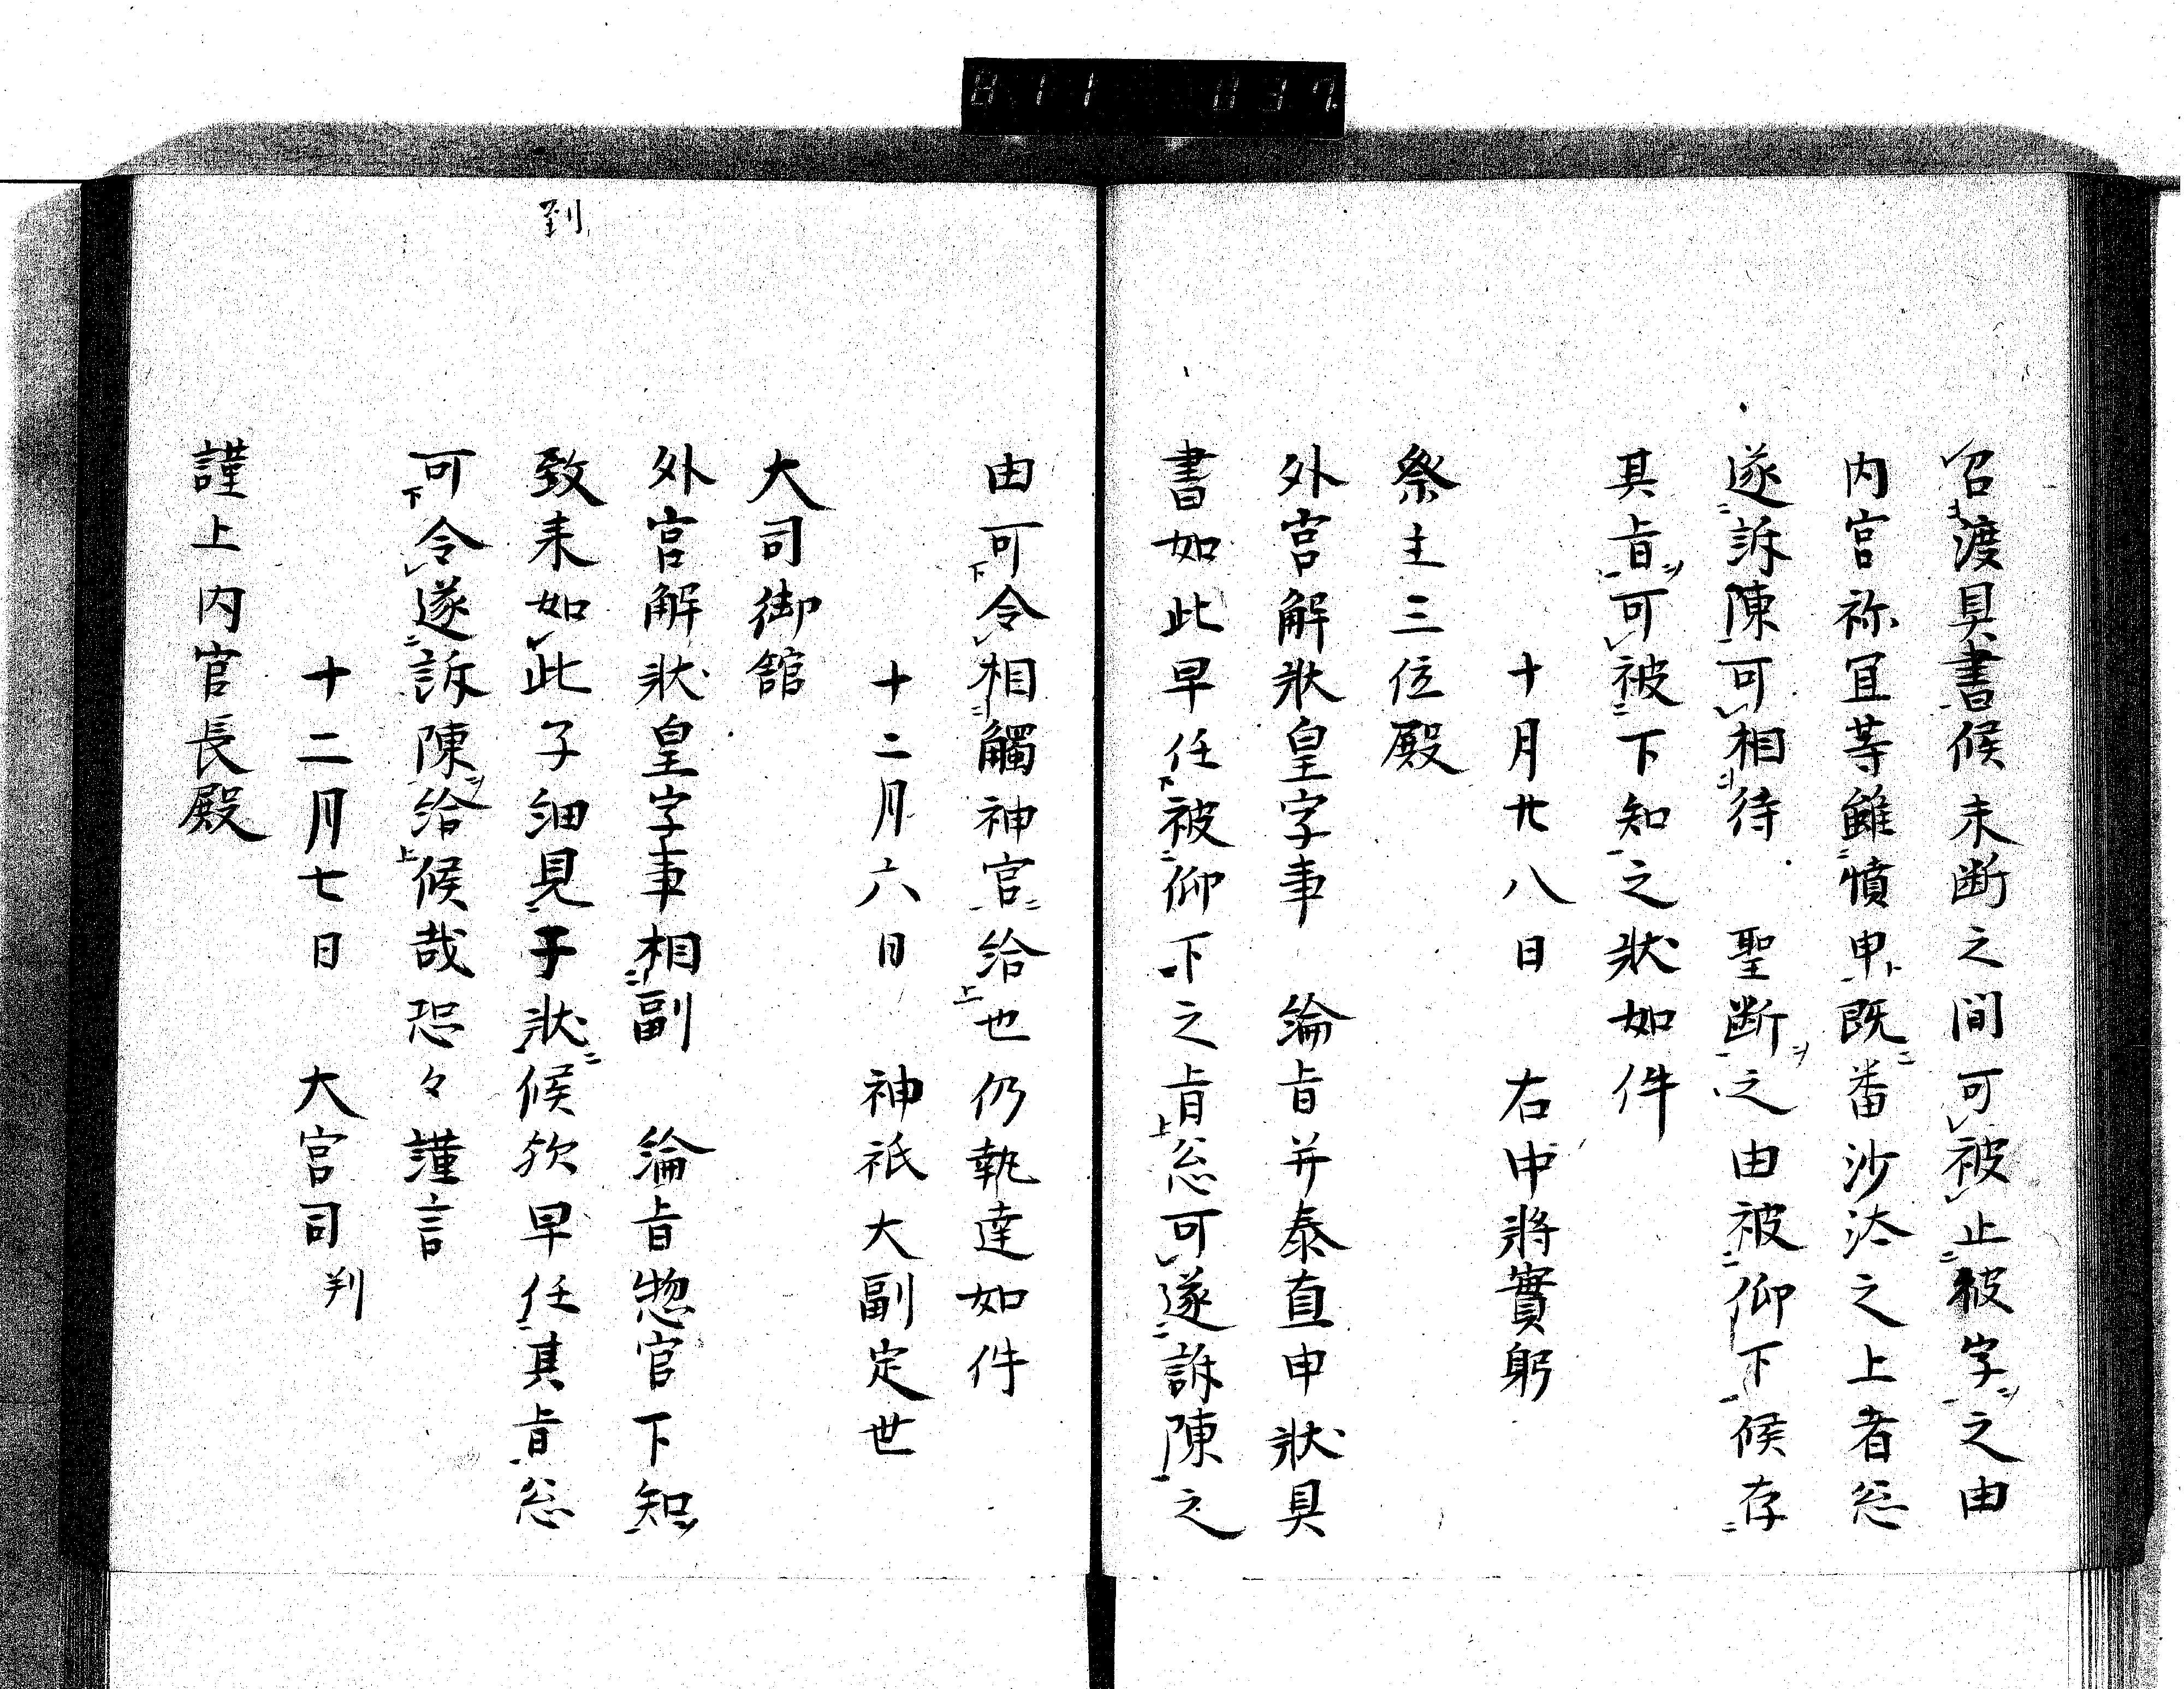 召渡具書候未断之間可被止彼字之由
内宮祢冝等雖憤申既番沙汰之上者忩
遂訴陳可相待　聖断之由被仰下候存
其旨可被下知之状如件
十月廿八日　右中將實躬
祭主三位殿
外宮解状皇字事　綸旨并泰直申状具
書如此早任被仰下之旨忩可遂訴陳之
由可令相觸神官給也仍執達如件
十二月六日　神祇大副定世
大司御舘
外宮解状皇字事相副　綸旨惣官下知
到
致来如此子細見子状候欤早任其旨忩
可令遂訴陳給候哉恐々謹言
十二月七日　大宮司判
謹上内官長殿